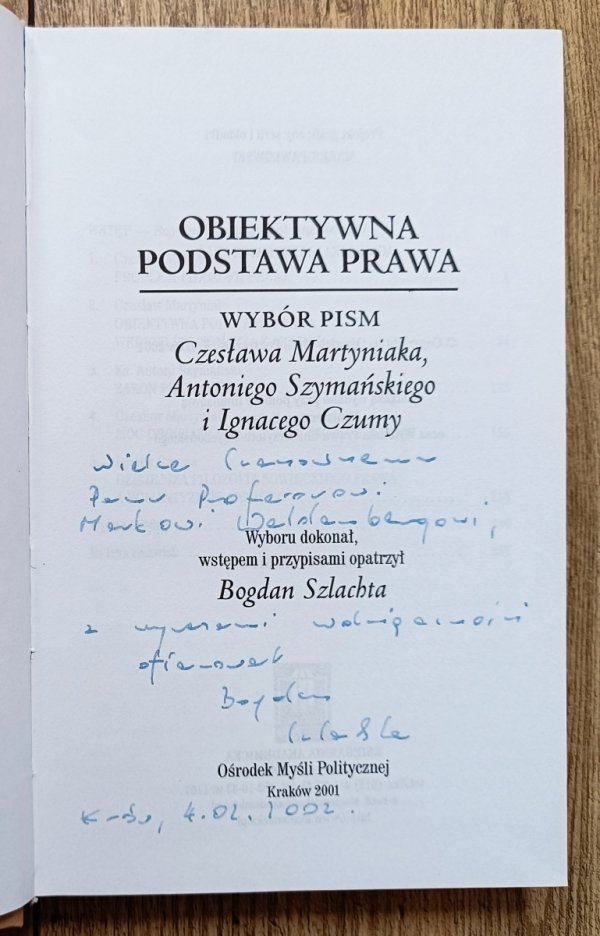 OBIEKTYWNA
PODSTAWA PRAWA
WYBÓR PISM
Czesława Martyniaka,
Antoniego Szymańskiego
i Ignacego Czumy
Wielce Szanownemu
Panu Profesorowi
Markowi Waldenbergowi,
Wyboru dokonał,
wstępem i przypisami opatrzył
Bogdan Szlachta
z wyrazami wdzięczności
ofiarował
Bogdan
Szlachta
Ośrodek Myśli Politycznej
Kraków 2001
Kraków, 4.02.2002.